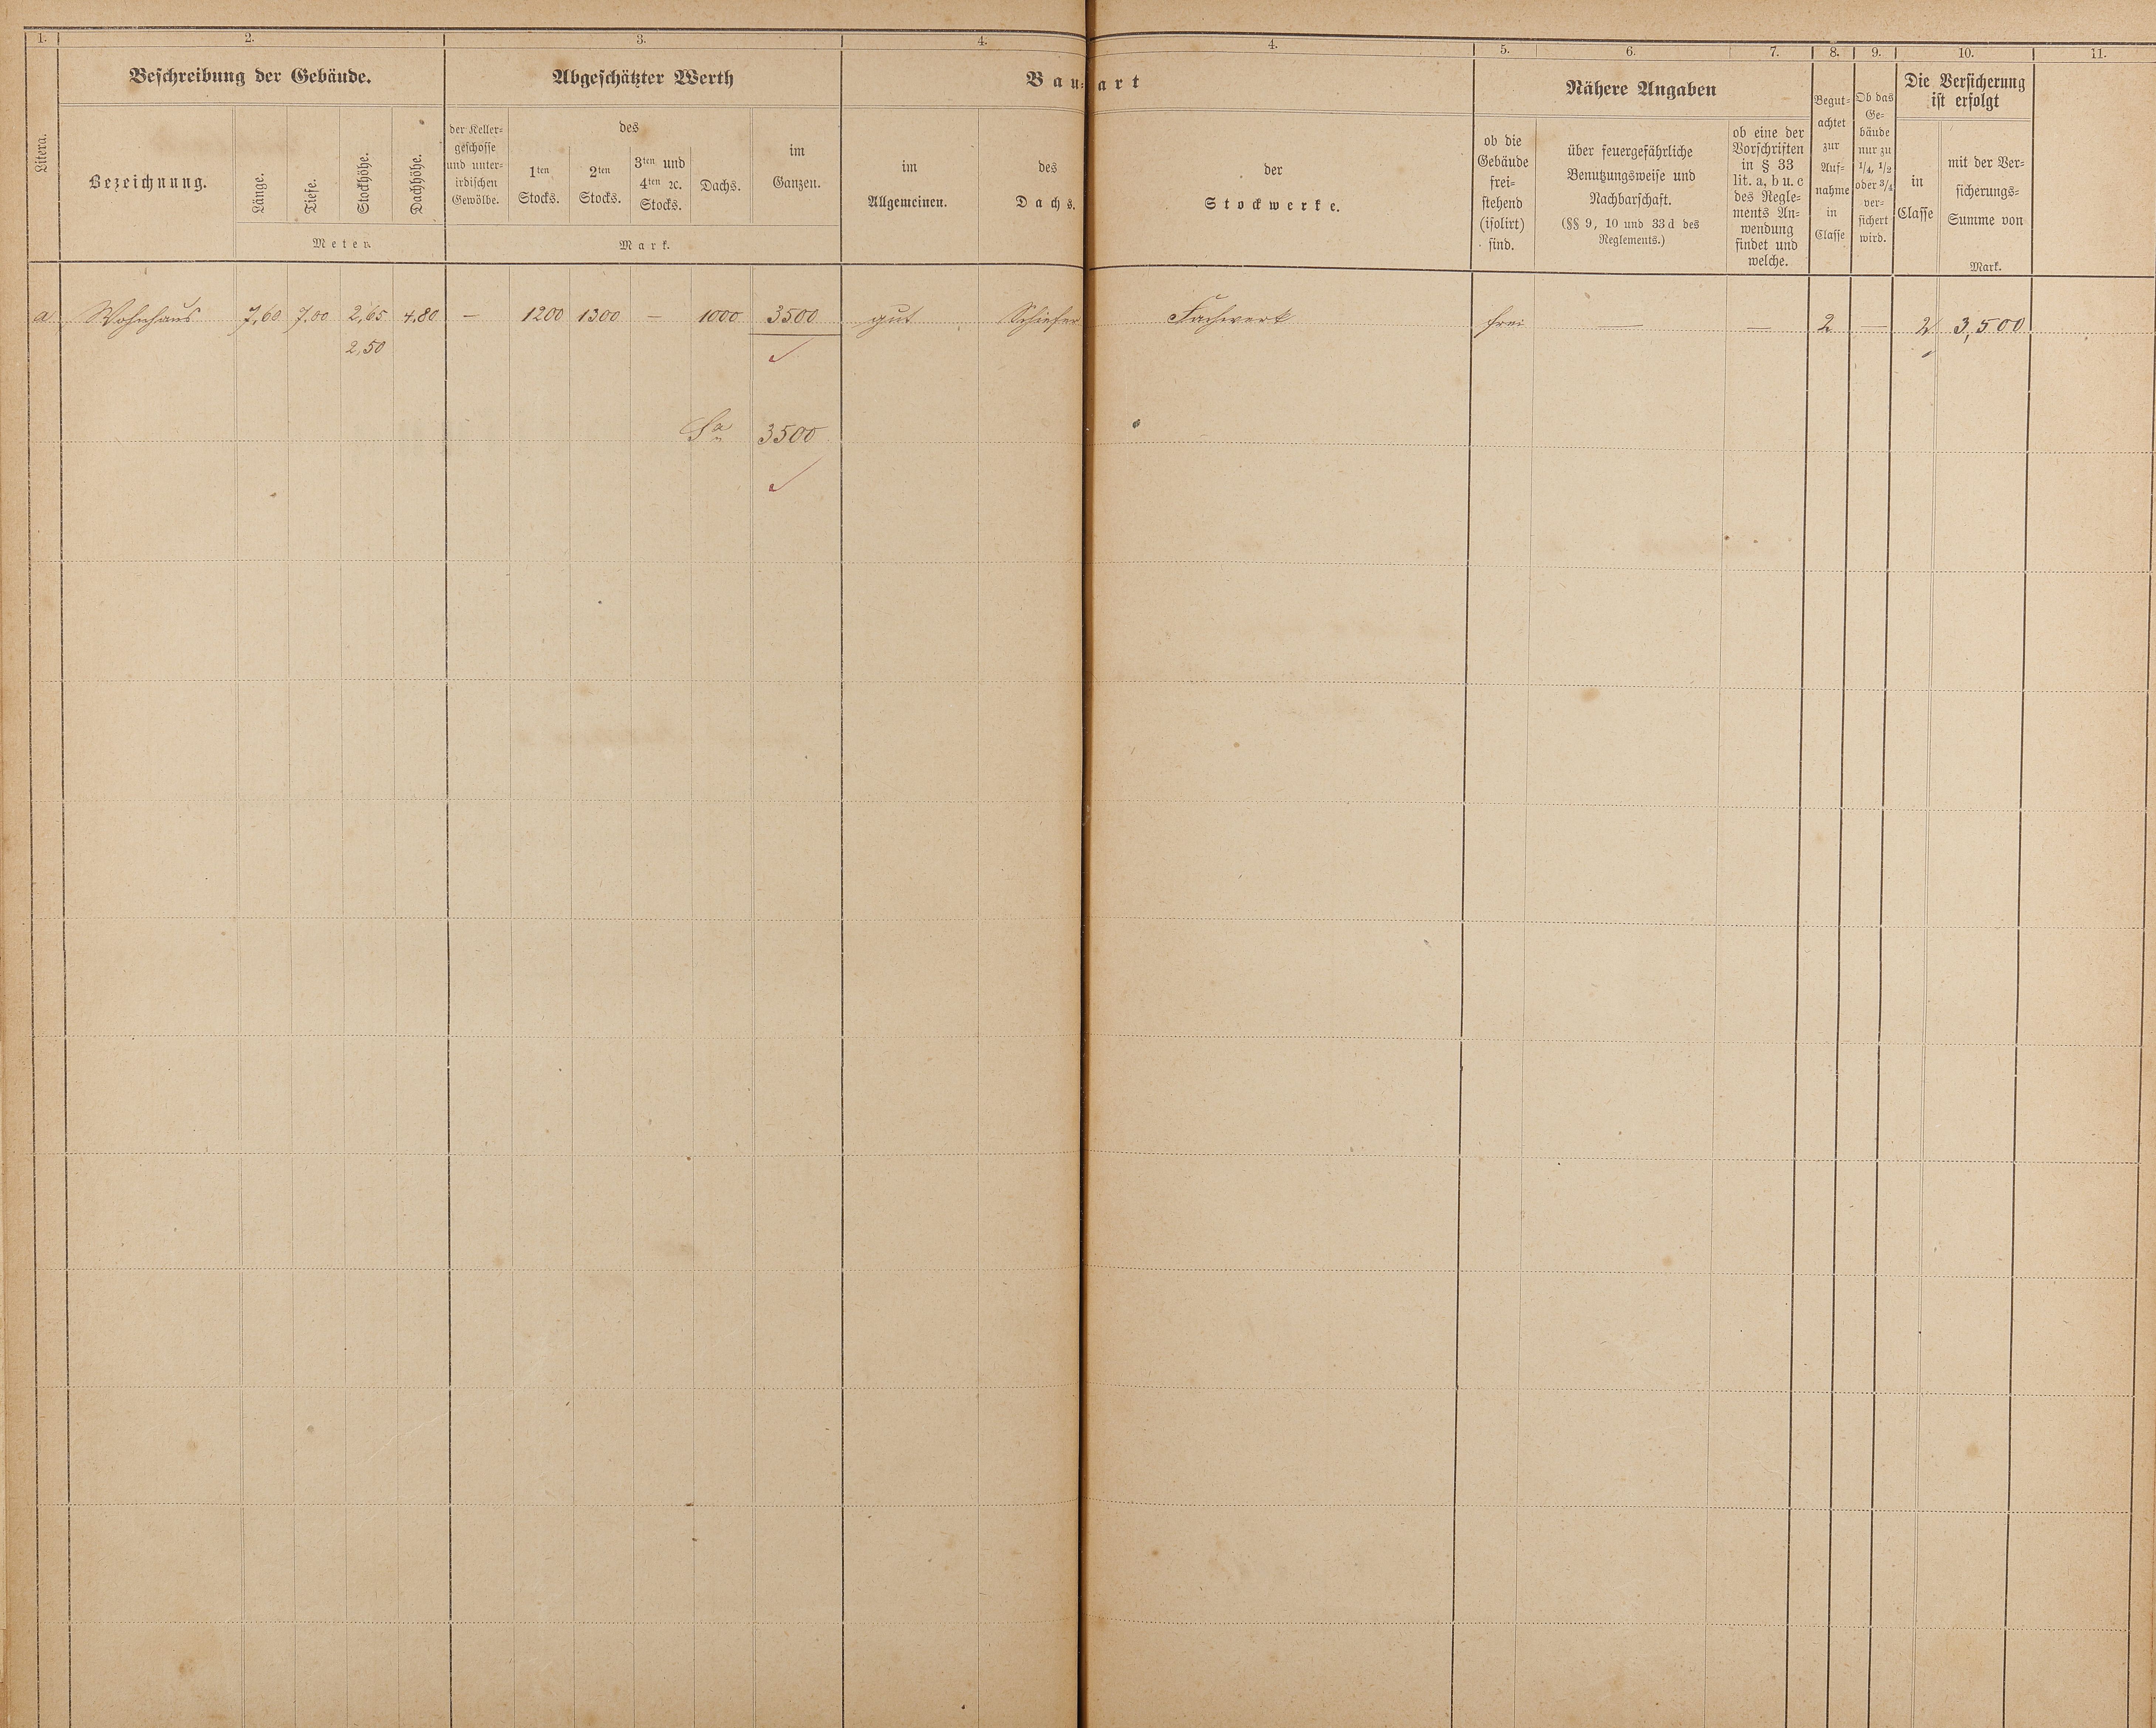 1. 2. 3. 4. 4. 5. 6. 7. 8. 9. 10. 11.
Beschreibung der Gebäude.
Abgeschätzter Werth
Bau-art
Nähere Angaben
Die Versicherung
ist erfolgt
Litera.
Bezeichnung.
Länge.
Tiefe.
Stockhöhe.
Dachhöhe.
Meter.
der Keller-
geschosse
und unter-
irdischen
Gewölbe.
des
1ten
Stocks.
2ten
Stocks.
3ten und
4ten ꝛc.
Stocks.
Dachs.
im
Ganzen.
Mark.
im
Allgemeinen.
des
Dachs.
der
Stockwerke.
ob die
Gebäude
frei-
stehend
(isolirt)
sind.
über feuergefährliche
Benutzungsweise und
Nachbarschaft.
(§§ 9, 10 und 33 d des
Reglements.)
ob eine der
Vorschriften
in § 33
lit. a, b u. c
des Regle-
ments An-
wendung
findet und
welche.
Begut-
achtet
zur
Auf-
nahme
in
Classe
Ob das
Ge-
bäude
nur zu
1/4, 1/2
oder 3/4
ver-
sichert
wird.
in
Classe
mit der Ver-
sicherungs-
Summe von
Mark.
a Wohnhaus 7,60 7,00 2,65 4,80 — 1200 1300 — 1000 3500 gut Schiefer Fachwerk frei — — 2 — 2 3,500
2,50
Sa 3500